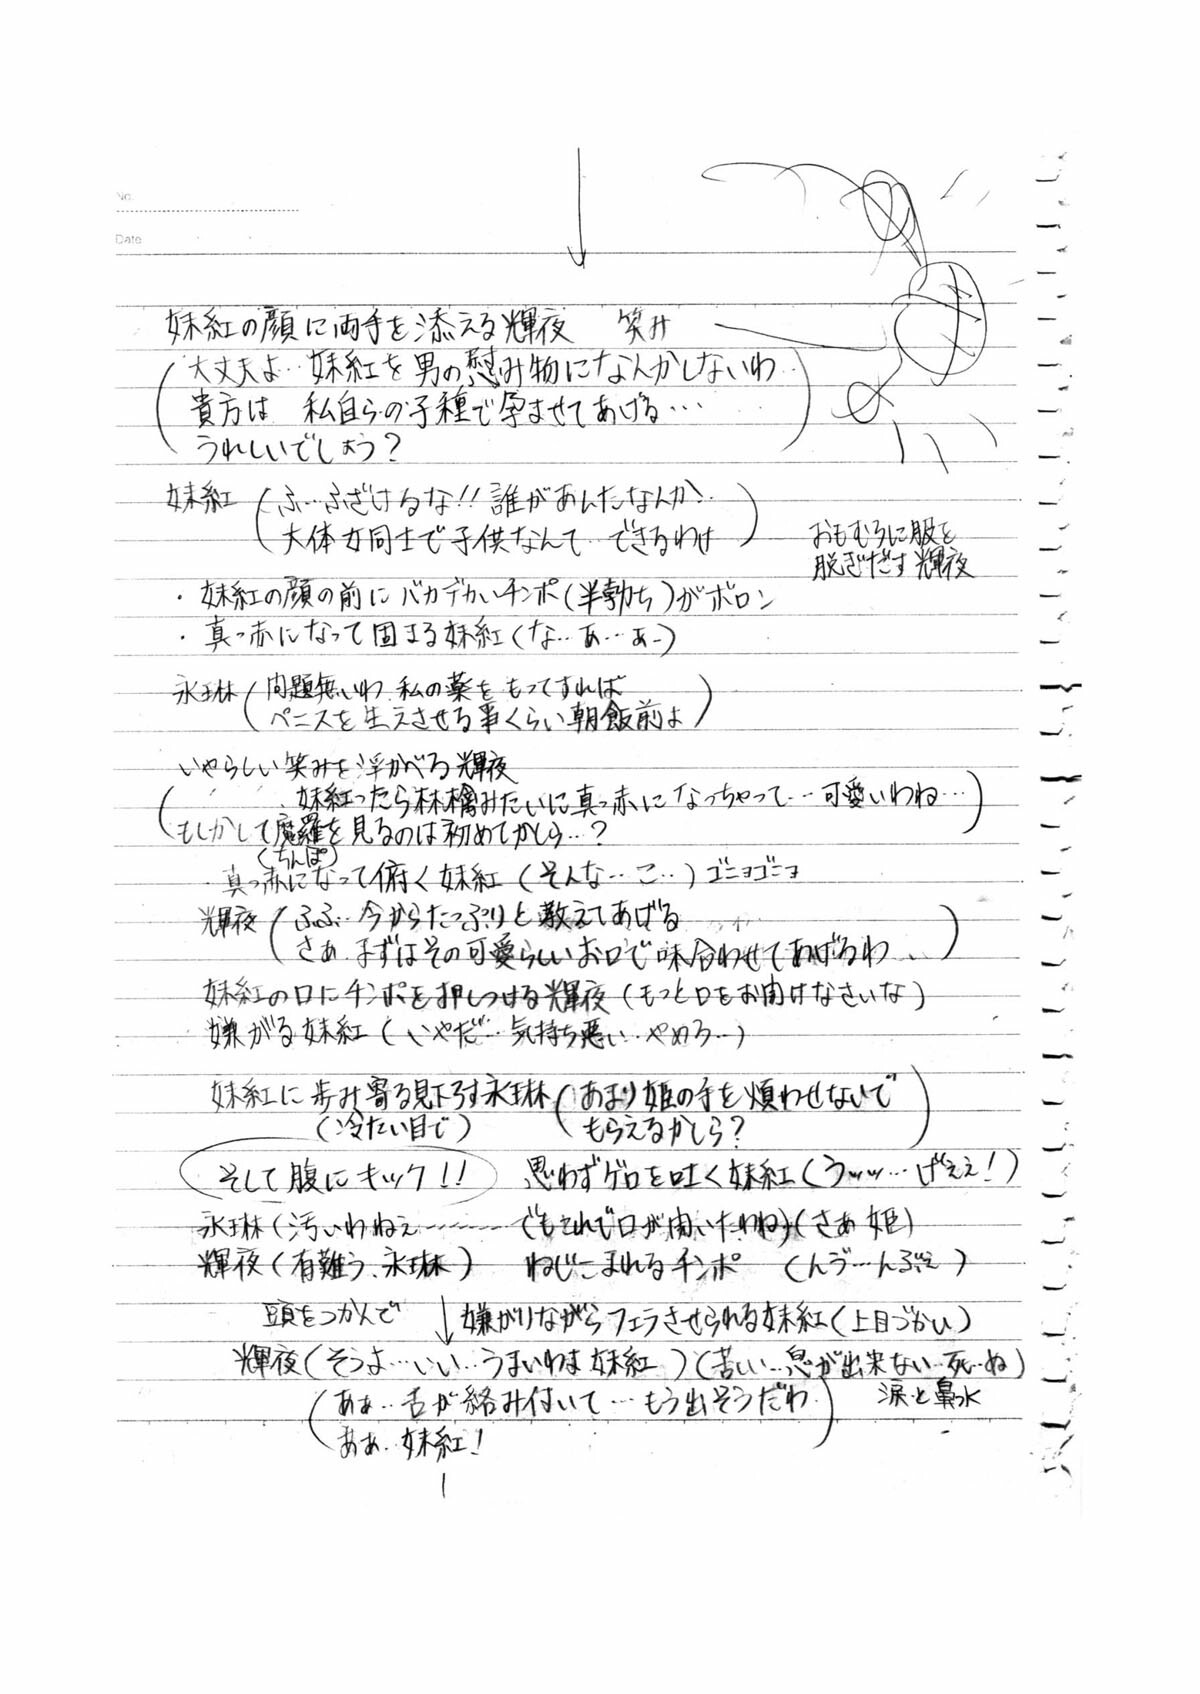 No.
Date
妹紅の顔に両手を添える輝夜 笑み
(大丈夫よ…妹紅を男の慰み物になんかしないわ…
貴方は 私自らの子種で孕ませてあげる…
うれしいでしょう?)
妹紅(ふ…ふざけるな!!誰があんたなんか…
大体女同士で子供なんて…できるわけ)
おもむろに服を
脱ぎだす輝夜
・妹紅の顔の前にバカデカいチンポ(半勃ち)がボロン
・真っ赤になって固まる妹紅(な…あ…あー)
永琳(問題無いわ、私の薬をもってすれば
ペニスを生えさせる事くらい朝飯前よ)
いやらしい笑みを浮かべる輝夜
(妹紅ったら林檎みたいに真っ赤になっちゃって…可愛いわね…
もしかして魔羅を見るのは初めてかしら…?)
(ちんぽ)
・真っ赤になって俯く妹紅(そんな…こ…)ゴニョゴニョ
輝夜(ふふ…今からたっぷりと教えてあげる
さあ まずはその可愛らしいお口で味合わせてあげるわ…)
妹紅の口にチンポを押しつける輝夜(もっと口をお開けなさいな)
嫌がる妹紅(いやだ…気持ち悪い…やめろ…)
妹紅に歩み寄る見下ろす永琳(あまり姫の手を煩わせないで
(冷たい目で) もらえるかしら?)
そして腹にキック!! 思わずゲロを吐く妹紅(うッッ…げぇぇ!)
永琳(汚いわねぇ……でもこれで口が開いたわね)(さあ 姫)
輝夜(有難う、永琳) ねじこまれるチンポ (んう゛…んぶぇ)
頭をつかんで ↓嫌がりながらフェラさせられる妹紅(上目づかい)
輝夜(そうよ…いい…うまいわよ妹紅)(苦しい…息が出来ない…死…ぬ)
(ああ…舌が絡み付いて…もう出そうだわ 涙と鼻水
ああ…妹紅!)